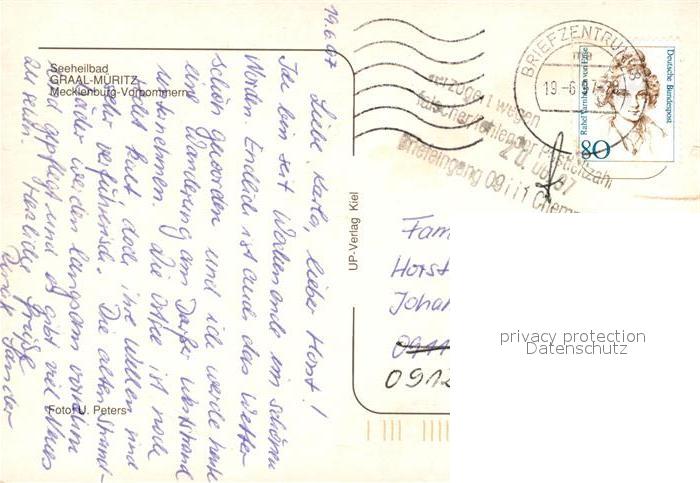 Seeheilbad
GRAAL-MÜRITZ
Mecklenburg-Vorpommern
19.6.97
Liebe Karla, lieber Horst!
Ich bin seit Wochenende im schönen
Norden. Endlich ist auch das Wetter
schön geworden und ich werde heute
eine Wanderung am Darßer Weststrand
unternehmen. Die Ostsee ist noch
kalt doch ihre Wellen sind
sehr verführerisch. Die alten Strand-
bäder werden langsam vornehm
und gepflegt und es gibt viel Neues
zu sehn.
Herzliche Grüße
Foto: U. Peters
UP-Verlag Kiel
BRIEFZENTRUM
19-6.97
verzögert wegen
falscher/fehlender Postleitzahl
20.06.97
Briefeingang 09111 Chem
Deutsche Bundespost
Rahel Varnhagen von Ense
80
Fam
Horst
Johan
0911
0912
privacy protection
Datenschutz